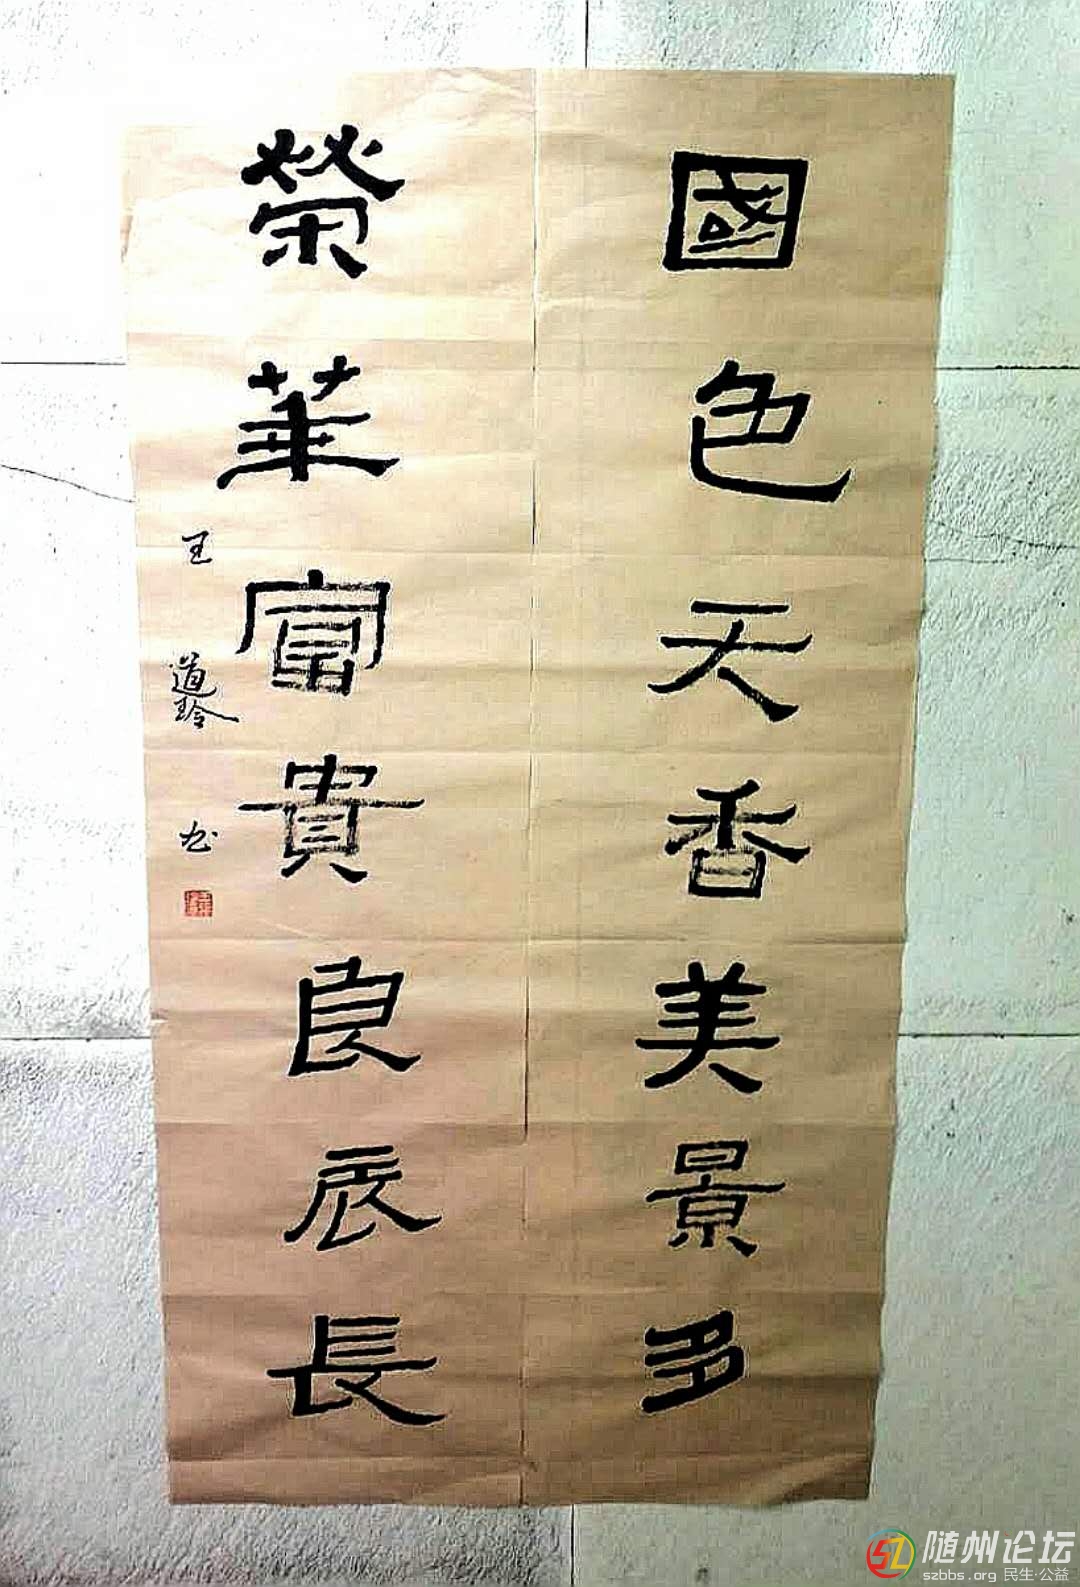 國色天香美景多
榮華富貴良辰長
王道玲书
随州论坛
szbbs.org 民生·公益